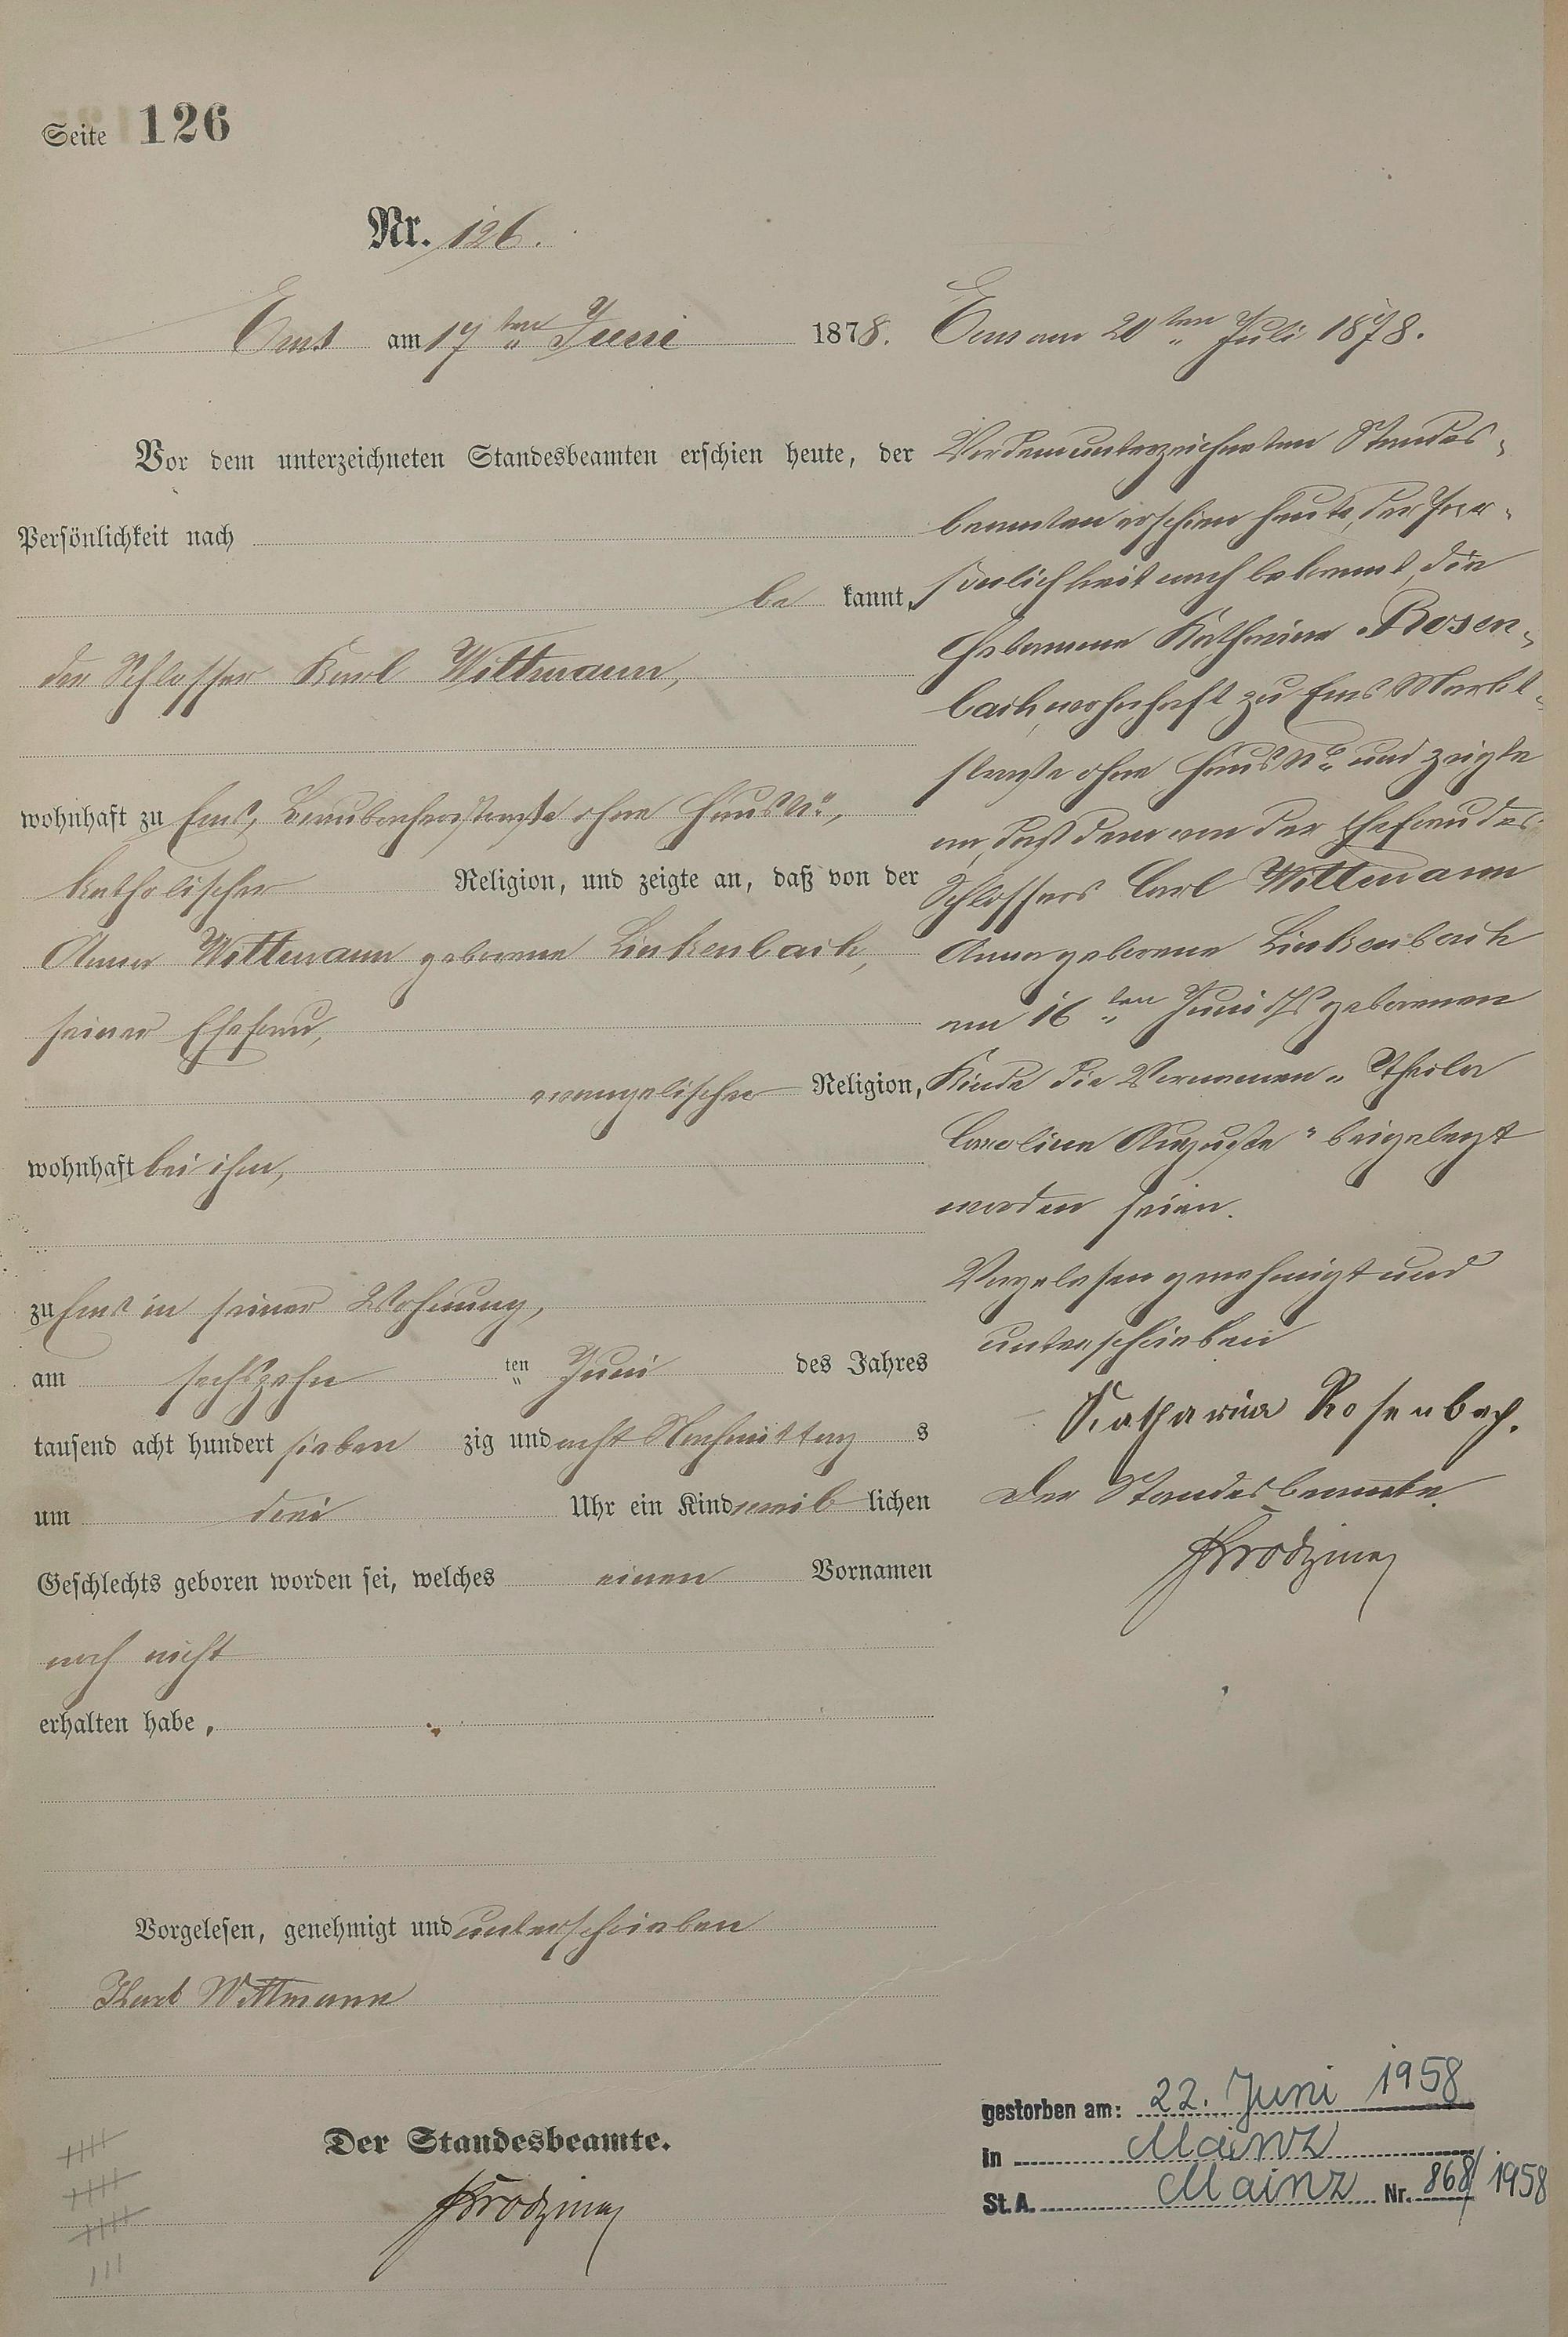 Seite 126
Nr. 126.
Ems am 17ten Juni 1878.
Vor dem unterzeichneten Standesbeamten erschien heute, der
Persönlichkeit nach
be kannt,
der Schlosser Karl Wittmann,
wohnhaft zu Ems, ohne Haus No,
katholischer Religion, und zeigte an, daß von der
Anna Wittmann geborene Linkenbach,
seiner Ehefrau,
evangelischer Religion,
wohnhaft bei ihm,
zu Ems in seiner Wohnung,
am sechszehn ten Juni des Jahres
tausend acht hundert sieben zig und acht Nachmittag s
um drei Uhr ein Kind weib lichen
Geschlechts geboren worden sei, welches einen Vornamen
noch nicht
erhalten habe.
Vorgelesen, genehmigt und unterschrieben
Karl Wittmann
Der Standesbeamte.
Ems am 20ten Juli 1878.
Vor dem unterzeichneten Standes-
beamten erschien heute, der Per-
sönlichkeit nach bekannt, die
Hebamme Katharina Rosen-
bach, wohnhaft zu Ems Markt-
straße ohne Haus No und zeigte
an, daß dem von der Ehefrau des
Schlossers Carl Wittmann
Anna geborene Linkenbach
am 16ten Juni geborenen
Kinde die Vornamen „Thekla
Caroline Auguste" beigelegt
worden seien.
Vorgelesen genehmigt und
unterschrieben
Katharina Rosenbach.
Der Standesbeamte.
gestorben am: 22. Juni 1958
in Mainz
St. A. Mainz Nr. 868/1958